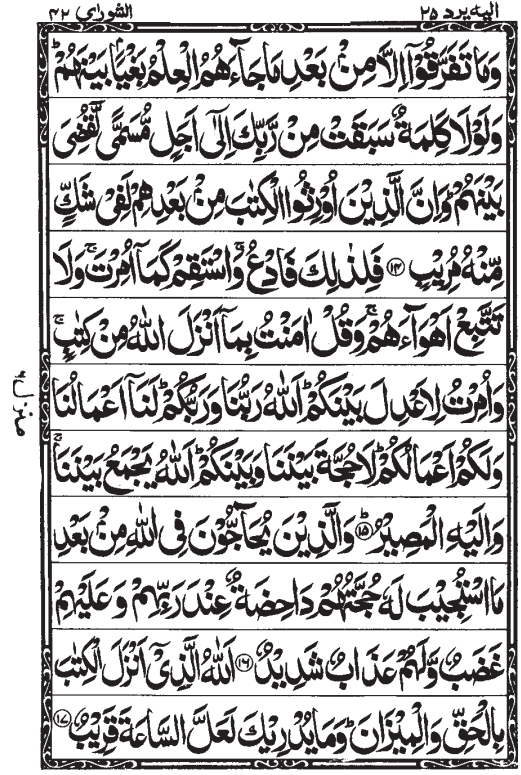 الیہ یرد ۲۵
الشورٰی ۴۲
وَمَا تَفَرَّقُوْۤا اِلَّا مِنْۢ بَعْدِ مَا جَآءَهُمُ الْعِلْمُ بَغْیًۢا بَیْنَهُمْ ؕ
وَلَوْلَا كَلِمَةٌ سَبَقَتْ مِنْ رَّبِّكَ اِلٰۤی اَجَلٍ مُّسَمًّی لَّقُضِیَ
بَیْنَهُمْ ؕ وَاِنَّ الَّذِیْنَ اُوْرِثُوا الْكِتٰبَ مِنْۢ بَعْدِهِمْ لَفِیْ شَكٍّ
مِّنْهُ مُرِیْبٍ ﴿۱۴﴾ فَلِذٰلِكَ فَادْعُ ۚ وَاسْتَقِمْ كَمَاۤ اُمِرْتَ ۚ وَلَا
تَتَّبِعْ اَهْوَآءَهُمْ ۚ وَقُلْ اٰمَنْتُ بِمَاۤ اَنْزَلَ اللّٰهُ مِنْ كِتٰبٍ ۚ
وَاُمِرْتُ لِاَعْدِلَ بَیْنَكُمْ ؕ اَللّٰهُ رَبُّنَا وَرَبُّكُمْ ؕ لَنَاۤ اَعْمَالُنَا
وَلَكُمْ اَعْمَالُكُمْ ؕ لَا حُجَّةَ بَیْنَنَا وَبَیْنَكُمْ ؕ اَللّٰهُ یَجْمَعُ بَیْنَنَا ۚ
وَاِلَیْهِ الْمَصِیْرُ ﴿۱۵﴾ ؕ وَالَّذِیْنَ یُحَآجُّوْنَ فِی اللّٰهِ مِنْۢ بَعْدِ
مَا اسْتُجِیْبَ لَهٗ حُجَّتُهُمْ دَاحِضَةٌ عِنْدَ رَبِّهِمْ وَعَلَیْهِمْ
غَضَبٌ وَّلَهُمْ عَذَابٌ شَدِیْدٌ ﴿۱۶﴾ اَللّٰهُ الَّذِیْۤ اَنْزَلَ الْكِتٰبَ
بِالْحَقِّ وَالْمِیْزَانَ ؕ وَمَا یُدْرِیْكَ لَعَلَّ السَّاعَةَ قَرِیْبٌ ﴿۱۷﴾
منزل ۶